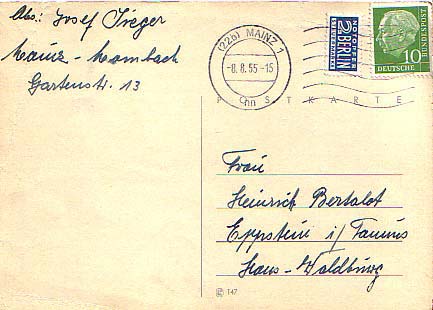 Abs.: Josef Sieger
Mainz-Mombach
Gartenstr. 13
(22b) MAINZ 1
-8.8.55-15
NOTOPFER
2 BERLIN
STEUERMARKE
10
DEUTSCHE
BUNDESPOST
POSTKARTE
Frau
Heinrich Bertaldt
Eppstein i/Taunus
Haus-Waldburg
147